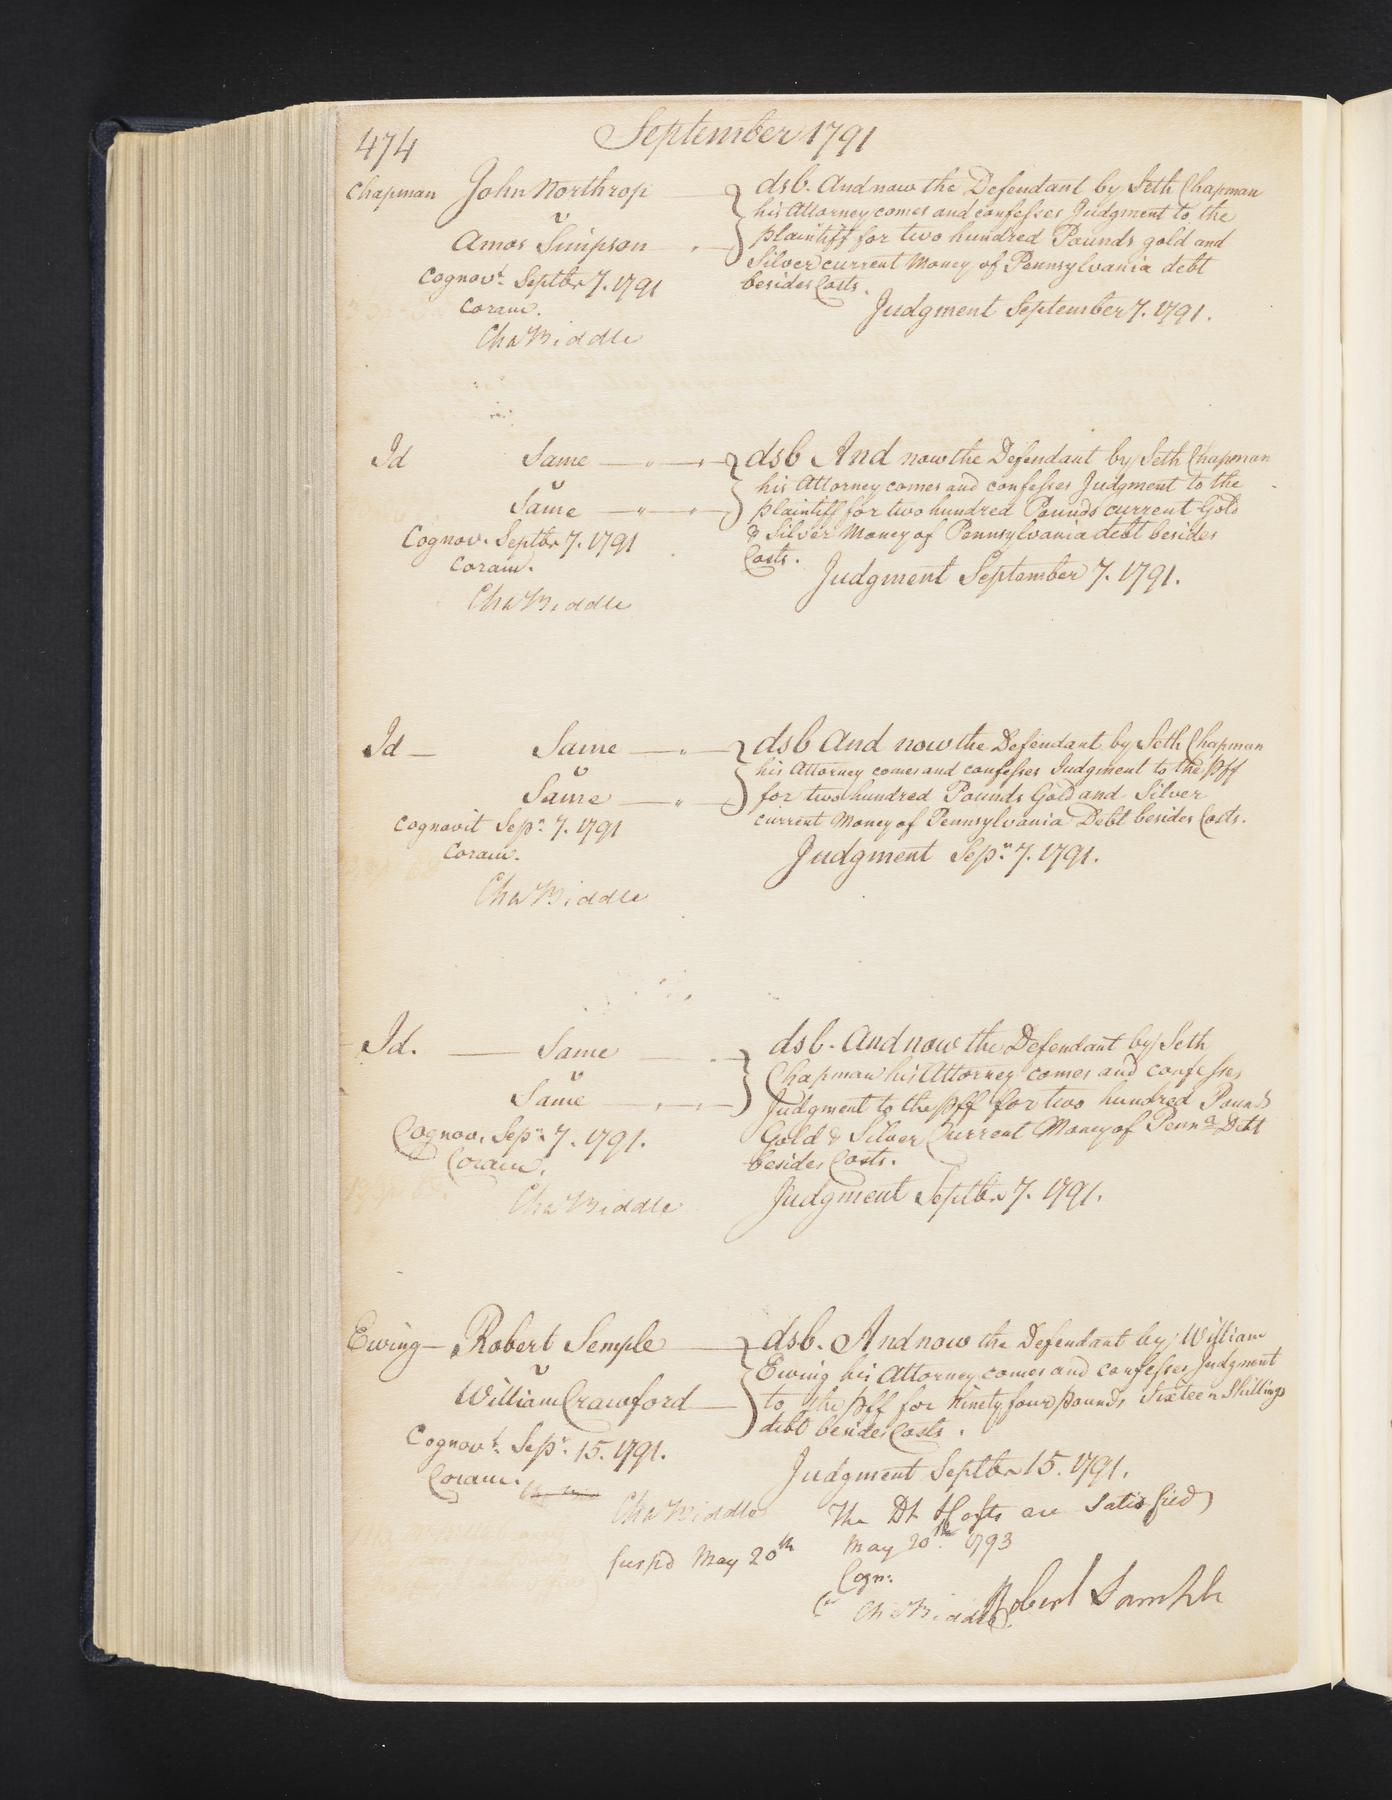 474 September 1791
Chapman John Northrop
v
Amos Simpson
Cognovt. Septbr 7. 1791
Coram.
Cha Biddle
dsb. And now the Defendant by Seth Chapman
his Attorney comes and confesses Judgment to the
plaintiff for two hundred Pounds gold and
Silver current Money of Pennsylvania debt
besides Costs.
Judgment September 7. 1791.
Id Same
v
Same
Cognov. Septbr 7. 1791
Coram.
Cha Biddle
dsb And now the Defendant by Seth Chapman
his Attorney comes and confesses Judgment to the
plaintiff for two hundred Pounds current Gold
& Silver Money of Pennsylvania debt besides
Costs.
Judgment September 7. 1791.
Id Same
v
Same
Cognovit Sepr. 7. 1791
Coram.
Cha Biddle
dsb And now the Defendant by Seth Chapman
his Attorney comes and confesses Judgment to the Pff
for two hundred Pounds Gold and Silver
current Money of Pennsylvania Debt besides Costs.
Judgment Sepr. 7. 1791.
Id. Same
v
Same
Cognov. Sepr. 7. 1791.
Coram.
Cha Biddle
dsb. And now the Defendant by Seth
Chapman his Attorney comes and confesses
Judgment to the Pff for two hundred Pounds
Gold & Silver Current Money of Penna Debt
besides Costs.
Judgment Septbr 7. 1791.
Ewing Robert Semple
v
William Crawford
Cognovt. Sepr. 15. 1791.
Coram.
Cha Biddle
dsb. And now the Defendant by William
Ewing his Attorney comes and confesses Judgment
to the Pff for Ninety four pounds Sixteen Shillings
debt besides Costs.
Judgment Septbr 15. 1791.
The Dt & Costs are Satisfied
May 20th. 1793
May 20th
Cogn.
Cor Cha Biddle
Robert Sample